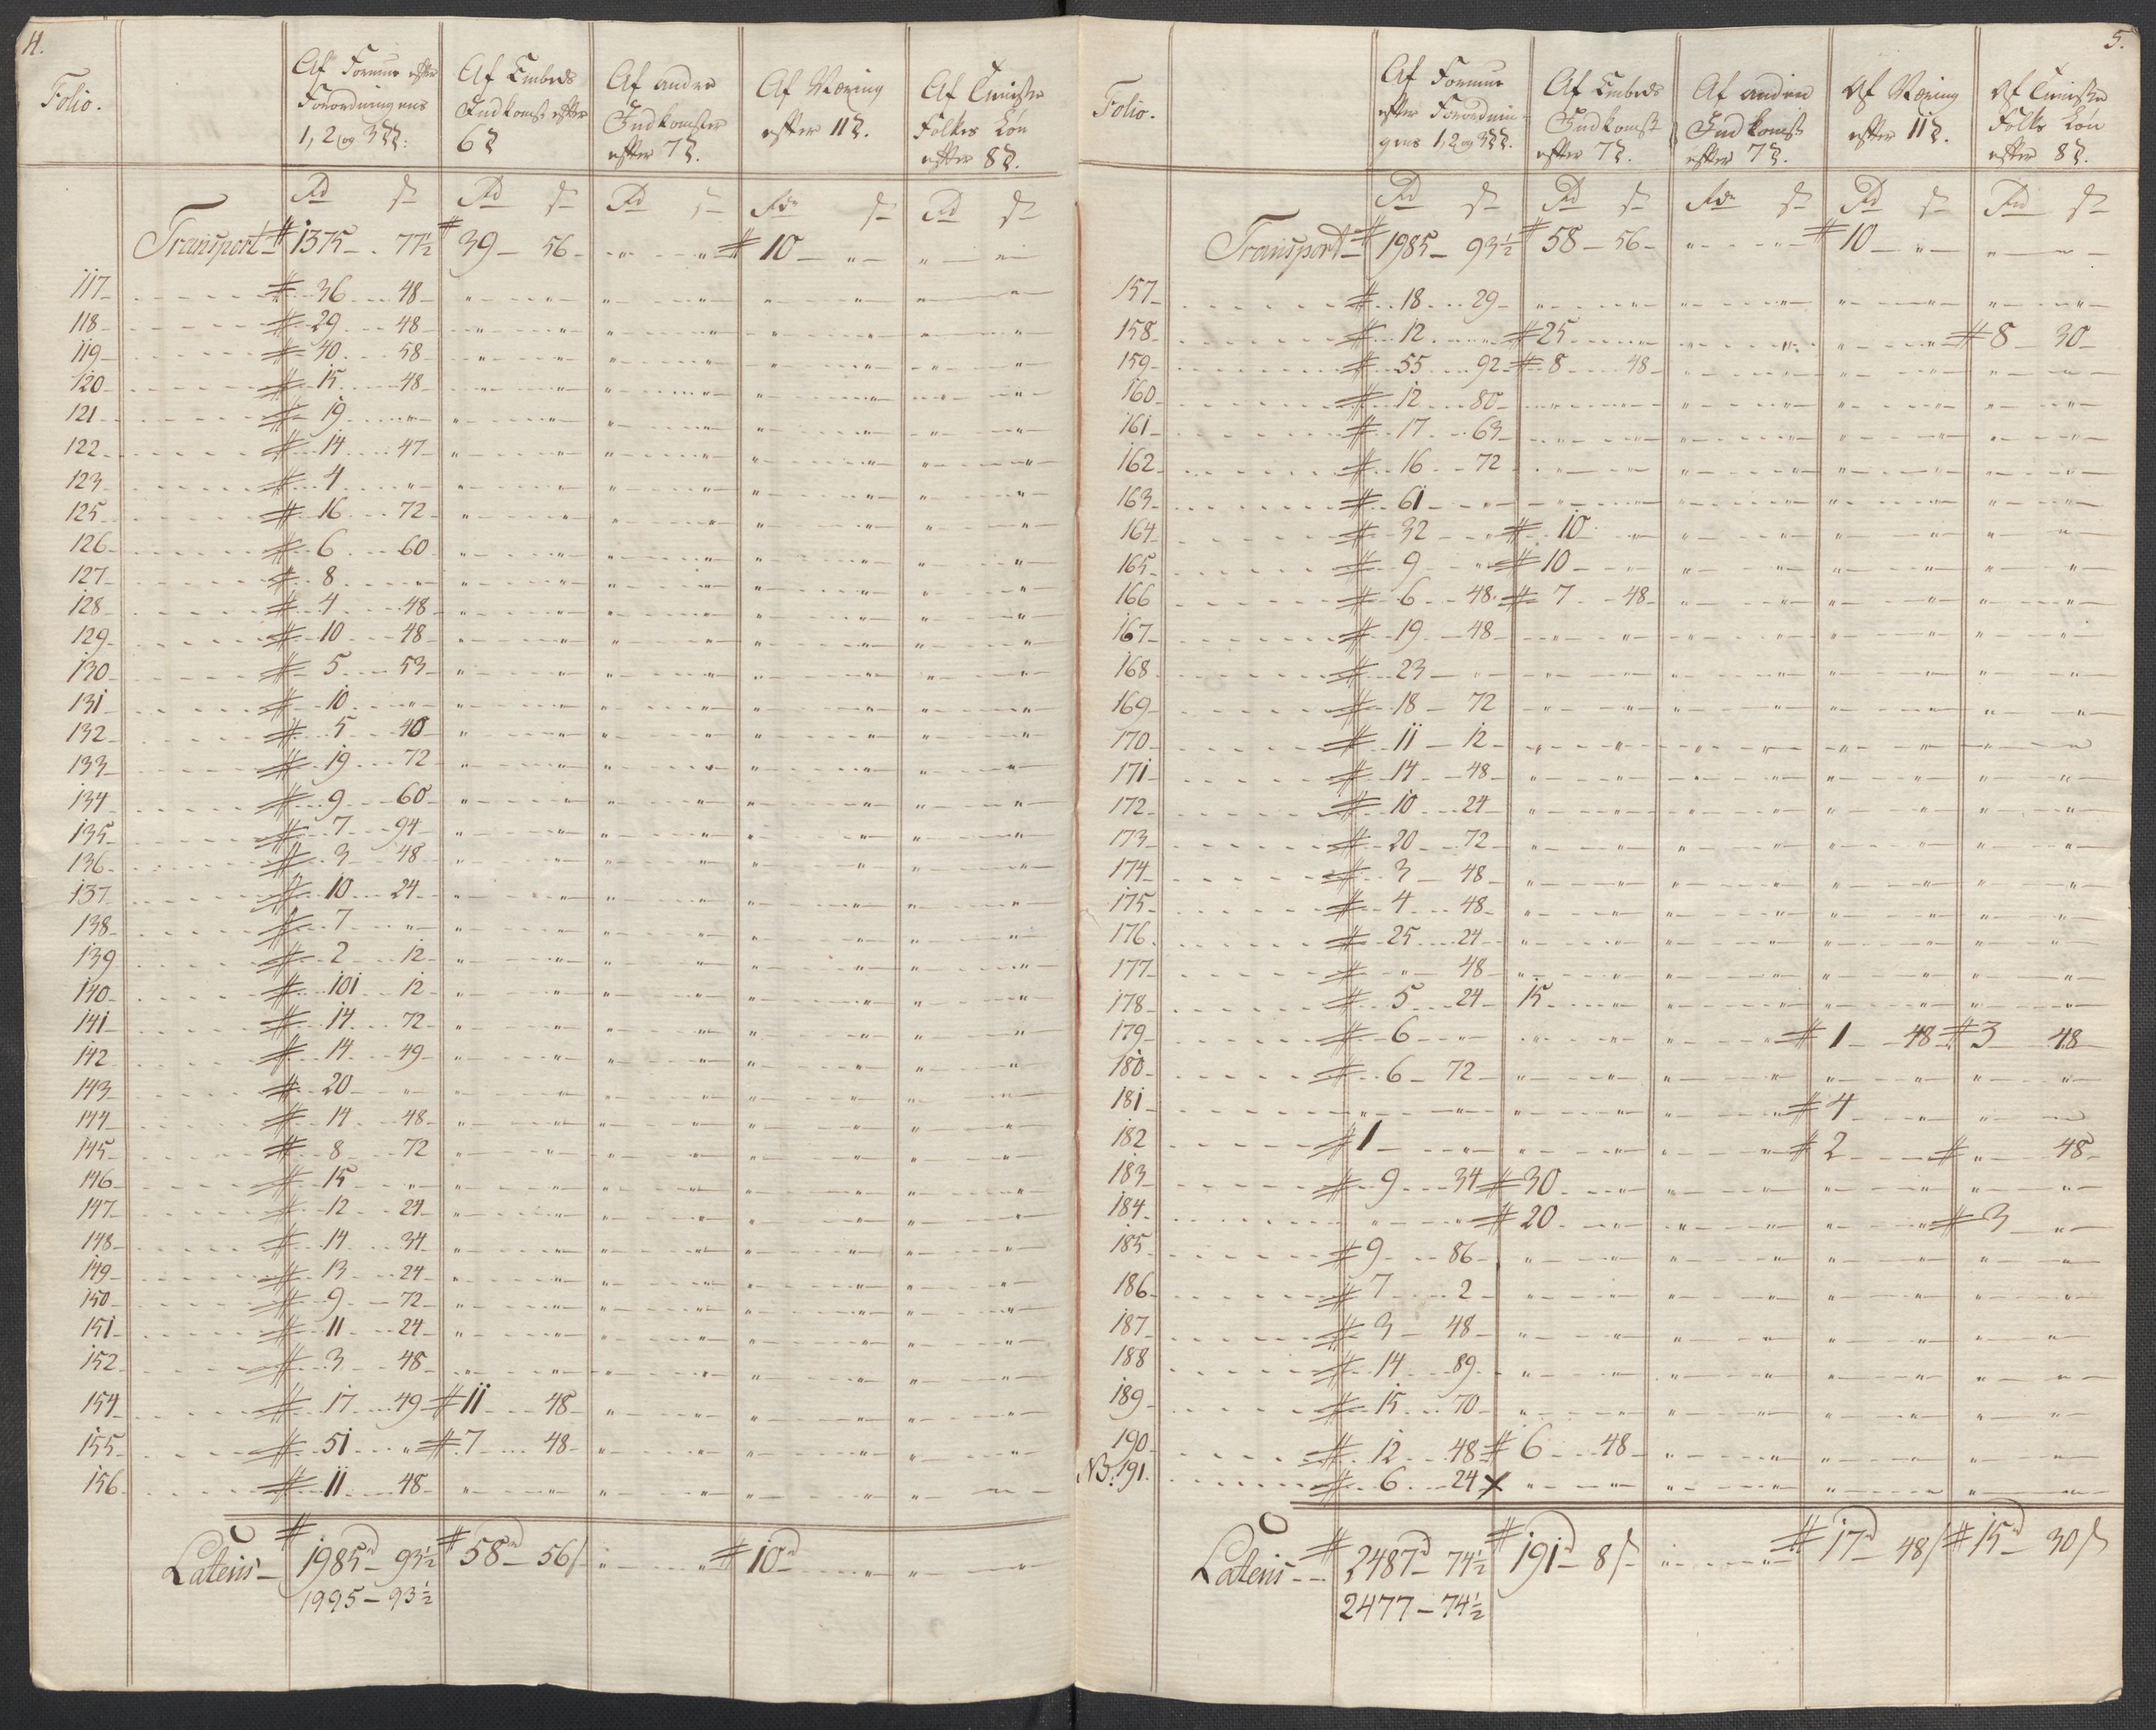 4.
Folio.
Af Formue efter Forordningens 1, 2 og 3 §§:
Af Embeds Indkomst efter 6 §
Af andre Indkomster efter 7 §.
Af Næring efter 11 §.
Af Tieneste Folkes Løn efter 8 §.
Rd s Rd s Rd s Rdr s Rd s
Transport # 1375 77½ # 39 56 " " # 10 " " "
117 # 36 48 " " " " " " " "
118 # 29 48 " " " " " " " "
119 # 40 58 " " " " " " " "
120 # 15 48 " " " " " " " "
121 # 19 " " " " " " " " "
122 # 14 47 " " " " " " " "
123 # 4 " " " " " " " " "
125 # 16 72 " " " " " " " "
126 # 6 60 " " " " " " " "
127 # 8 " " " " " " " " "
128 # 4 48 " " " " " " " "
129 # 10 48 " " " " " " " "
130 # 5 53 " " " " " " " "
131 # 10 " " " " " " " " "
132 # 5 40 " " " " " " " "
133 # 19 72 " " " " " " " "
134 # 9 60 " " " " " " " "
135 # 7 94 " " " " " " " "
136 # 3 48 " " " " " " " "
137 # 10 24 " " " " " " " "
138 # 7 " " " " " " " " "
139 # 2 12 " " " " " " " "
140 # 101 12 " " " " " " " "
141 # 14 72 " " " " " " " "
142 # 14 49 " " " " " " " "
143 # 20 " " " " " " " " "
144 # 14 48 " " " " " " " "
145 # 8 72 " " " " " " " "
146 # 15 " " " " " " " " "
147 # 12 24 " " " " " " " "
148 # 14 34 " " " " " " " "
149 # 13 24 " " " " " " " "
150 # 9 72 " " " " " " " "
151 # 11 24 " " " " " " " "
152 # 3 48 " " " " " " " "
154 # 17 49 # 11 48 " " " " " "
155 # 51 " # 7 48 " " " " " "
156 # 11 48 " " " " " " " "
Lateris # 1985d 93½ # 58d 56s " " # 10d " " "
1995 – 93½
5.
Folio.
Af Formue efter Forordningens 1, 2 og 3 §§.
Af Embeds Indkomst efter 7 §.
Af anden Indkomst efter 7 §.
Af Næring efter 11 §.
Af Tieneste Folks Løn efter 8 §.
Rd s Rd s Rdr s Rd s Rd s
Transport # 1985 93½ # 58 56 " " # 10 " " "
157 # 18 29 " " " " " " " "
158 # 12 " # 25 " " " " " # 8 30
159 # 55 92 # 8 48 " " " " " "
160 # 12 80 " " " " " " " "
161 # 17 63 " " " " " " " "
162 # 16 72 " " " " " " " "
163 # 61 " " " " " " " " "
164 # 32 " # 10 " " " " " " "
165 # 9 " # 10 " " " " " " "
166 # 6 48 # 7 48 " " " " " "
167 # 19 48 " " " " " " " "
168 # 23 " " " " " " " " "
169 # 18 72 " " " " " " " "
170 # 11 12 " " " " " " " "
171 # 14 48 " " " " " " " "
172 # 10 24 " " " " " " " "
173 # 20 72 " " " " " " " "
174 # 3 48 " " " " " " " "
175 # 4 48 " " " " " " " "
176 # 25 24 " " " " " " " "
177 # " 48 " " " " " " " "
178 # 5 24 15 " " " " " " "
179 # 6 " " " " " # 1 48 # 3 48
180 # 6 72 " " " " " " " "
181 " " " " " " # 4 " " "
182 # 1 " " " " " # 2 " # " 48
183 # 9 34 # 30 " " " " " " "
184 " " # 20 " " " " " # 3 "
185 # 9 86 " " " " " " " "
186 # 7 2 " " " " " " " "
187 # 3 48 " " " " " " " "
188 # 14 89 " " " " " " " "
189 # 15 70 " " " " " " " "
190 # 12 48 # 6 48 " " " " " "
NB: 191. # 6 24 × " " " " " " " "
Lateris # 2487d 74½ # 191d 8s " " # 17d 48s # 15d 30s
2477 – 74½